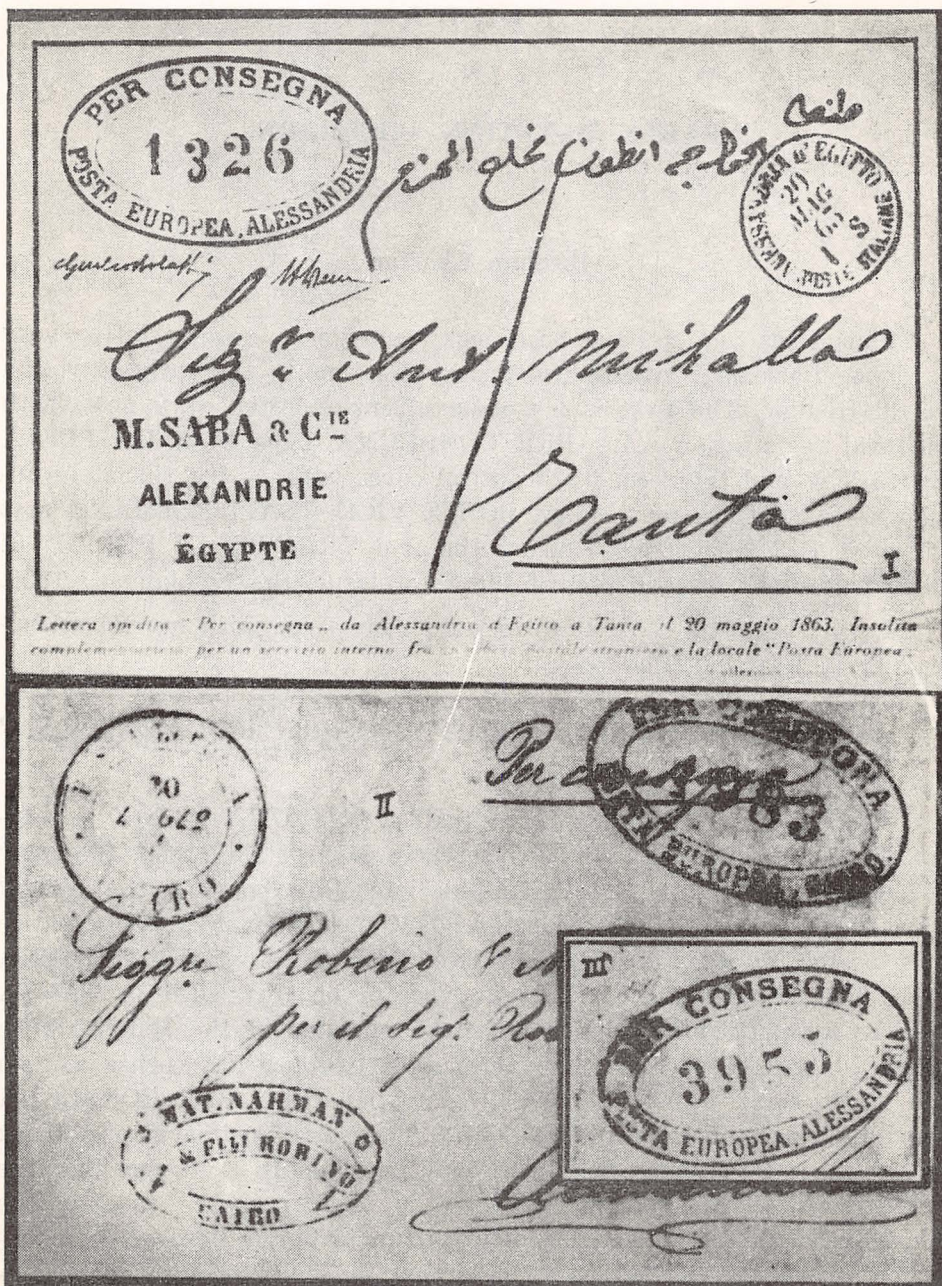 PER CONSEGNA
1326
POSTA EUROPEA, ALESSANDRIA
طنطا
ALESSANDRIA D'EGITTO
20
MAG
63
1 S
POSTE ITALIANE
Sigr Ant. Mihalla
M. SABA & CIE
ALEXANDRIE
ÉGYPTE
Tanta
I
Lettera spedita "Per consegna" da Alessandria d'Egitto a Tanta il 20 maggio 1863. Insolita
complementarietà per un servizio interno fra un ufficio postale straniero e la locale "Posta Europea"
II
Per consegna
PER CONSEGNA
83
POSTA EUROPEA, CAIRO.
Siggri Robino &
per il sig.
MAT. NAHMAN
& FLLI ROBINO
CAIRO
III
PER CONSEGNA
3955
POSTA EUROPEA, ALESSANDRIA